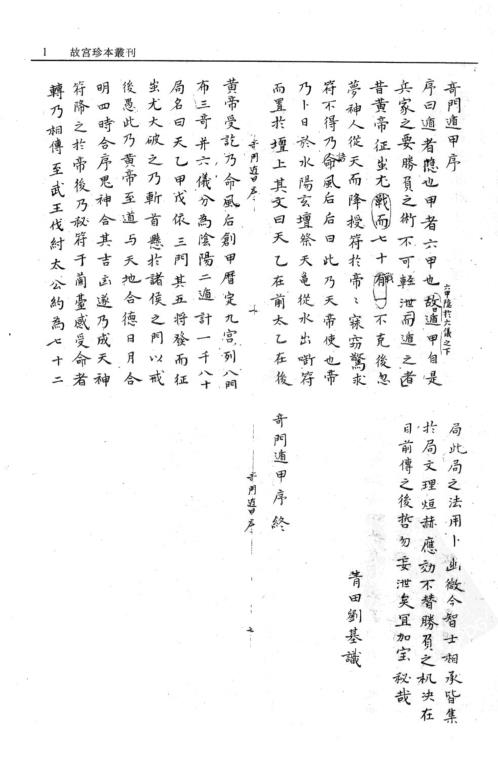 1 故宮珍本叢刊
奇門遁甲序
序曰遁者隱也甲者六甲也故遁甲自是
六甲隐於六儀之下
兵家之要勝負之術不可輕泄而遁之者
昔黃帝征蚩尤戰而七十有一不克後忽
夢神人從天而降授符於帝〻寐窃驚求
符不得乃命風后后曰此乃天帝使也帝
詰
乃卜日於水陽玄壇祭天龟從水出啣符
而置於壇上其文曰天乙在前太乙在後
奇門遁甲序
黃帝受訖乃命風后創甲曆定九宮列八門
布三奇并六儀分為陰陽二遁計一千八十
局名曰天乙甲戊依三門其五将發而征
蚩尤大破之乃斬首懸於諸侯之門以戒
後愚此乃黃帝至道与天地合德日月合
明四時合序鬼神合其吉凶遂乃成天神
符降之於帝後乃秘符于蘭臺感受命者
轉乃相傳至武王伐紂太公約為七十二
局此局之法用卜幽微今智士相承皆集
於局文理烜赫應効不替勝負之机决在
目前傳之後哲勿妄泄矣宜加宝秘哉
青田劉基識
奇門遁甲序終
奇門遁甲序